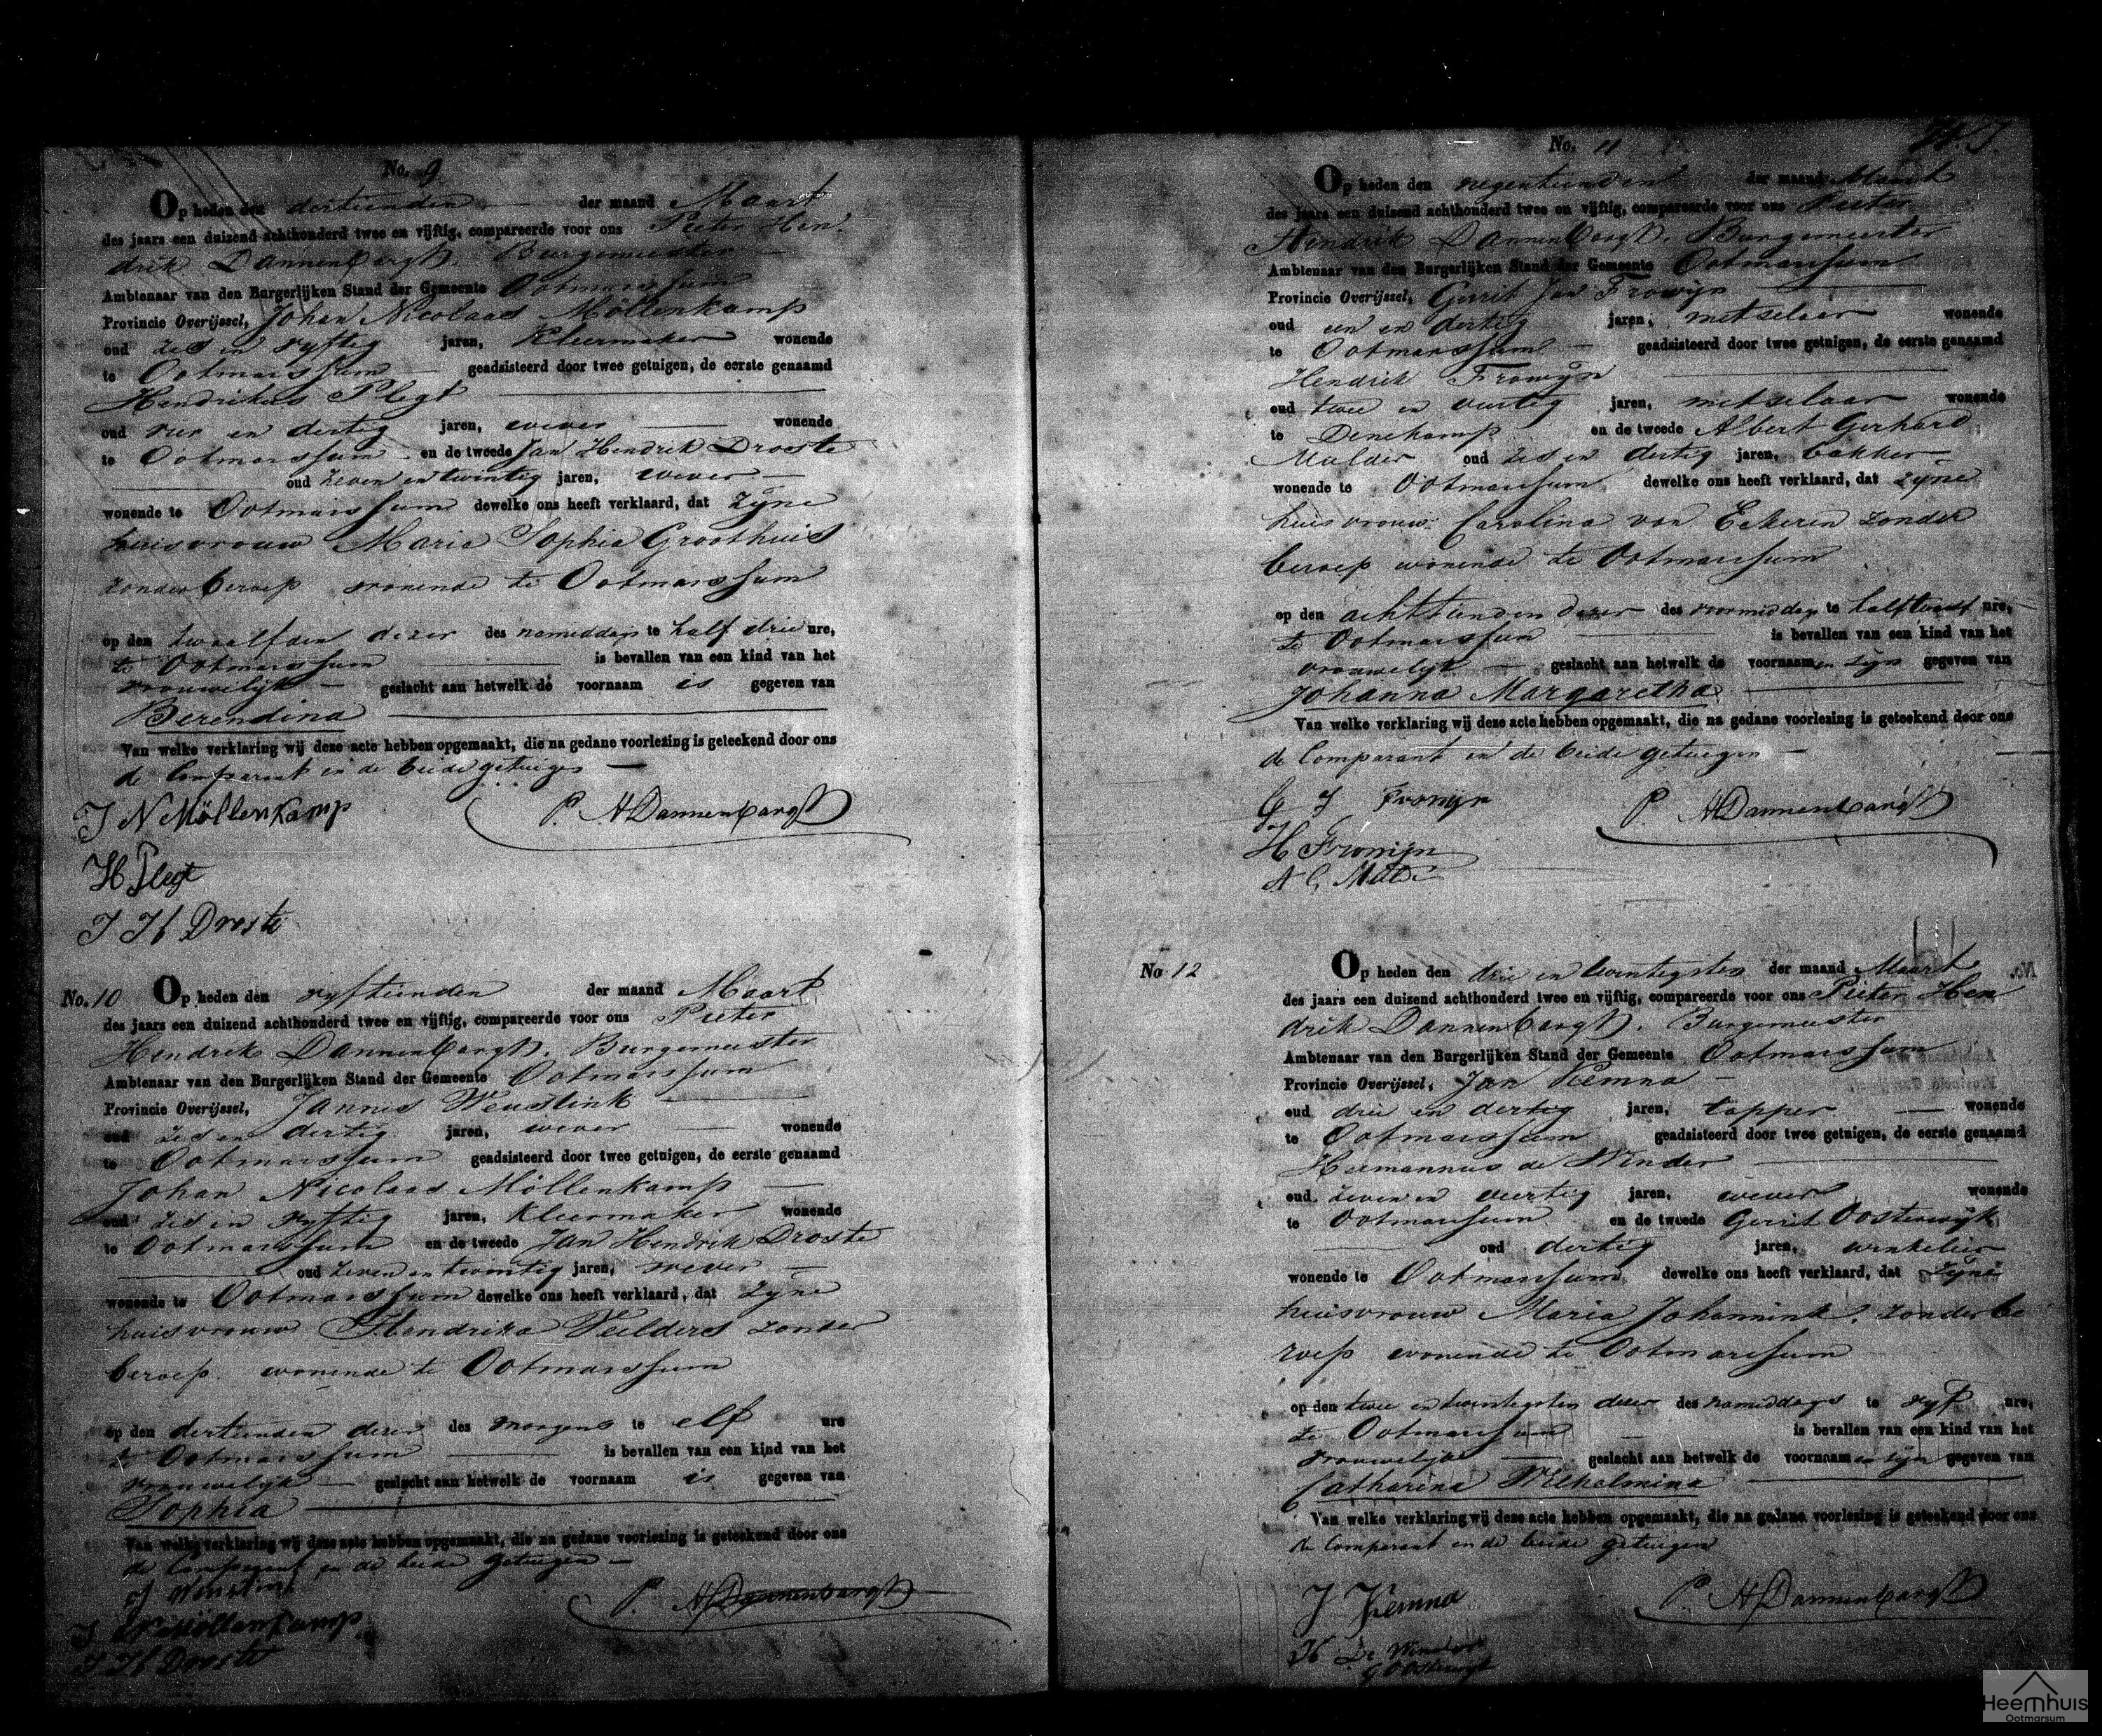 No. 9
Op heden den dertienden der maand Maart
des jaars een duizend achthonderd twee en vijftig, compareerde voor ons Pieter Hen
drik Dannenbargh, Burgemeester
Ambtenaar van den Burgerlijken Stand der Gemeente Ootmarssum
Provincie Overijssel, Johan Nicolaas Möllenkamp
oud zes en vyftig jaren, Kleermaker wonende
te Ootmarssum geadsisteerd door twee getuigen, de eerste genaamd
Hendrikus Plegt
oud vier en dertig jaren, wever wonende
te Ootmarssum en de tweede Jan Hendrik Droste
oud zeven en twintig jaren, wever
wonende te Ootmarssum dewelke ons heeft verklaard, dat zyne
huisvrouw Maria Sophia Groothuis
zonder beroep wonende te Ootmarssum
op den twaalfden dezer des namiddags te half drie ure,
te Ootmarssum is bevallen van een kind van het
vrouwelijk geslacht aan hetwelk de voornaam is gegeven van
Berendina
Van welke verklaring wij deze acte hebben opgemaakt, die na gedane voorlezing is geteekend door ons
de Comparant en de beide getuigen
J N Möllenkamp P. H Dannenbargh
H Plegt
J H Droste
No. 10 Op heden den vyftienden der maand Maart
des jaars een duizend achthonderd twee en vijftig, compareerde voor ons Pieter
Hendrik Dannenbargh, Burgemeester
Ambtenaar van den Burgerlijken Stand der Gemeente Ootmarssum
Provincie Overijssel, Jannes Weustink
oud zes en dertig jaren, wever wonende
te Ootmarssum geadsisteerd door twee getuigen, de eerste genaamd
Johan Nicolaas Möllenkamp
oud zes en vyftig jaren, Kleermaker wonende
te Ootmarssum en de tweede Jan Hendrik Droste
oud zeven en twintig jaren, wever
wonende te Ootmarssum dewelke ons heeft verklaard, dat zyne
huisvrouw Hendrika Veelders zonder
beroep wonende te Ootmarssum
op den dertienden dezer des morgens te elf ure
te Ootmarssum is bevallen van een kind van het
vrouwelijk geslacht aan hetwelk de voornaam is gegeven van
Sophia
Van welke verklaring wij deze acte hebben opgemaakt, die na gedane voorlezing is geteekend door ons
de Comparant en de beide getuigen
P. H Dannenbargh
J N Möllenkamp
J H Droste
No. 11
Op heden den negentienden der maand Maart
des jaars een duizend achthonderd twee en vijftig, compareerde voor ons Pieter
Hendrik Dannenbargh, Burgemeester
Ambtenaar van den Burgerlijken Stand der Gemeente Ootmarssum
Provincie Overijssel, Gerrit Jan Frowijn
oud een en dertig jaren, metselaar wonende
te Ootmarssum geadsisteerd door twee getuigen, de eerste genaamd
Hendrik Frowijn
oud twee en veertig jaren, metselaar wonende
te Denekamp en de tweede Albert Gerhard
Mulder oud zes en dertig jaren, bakker
wonende te Ootmarssum dewelke ons heeft verklaard, dat zyne
huisvrouw Carolina van Eckeren zonder
beroep wonende te Ootmarssum
op den achttienden dezer des voormiddags te half twaalf ure,
te Ootmarssum is bevallen van een kind van het
vrouwelijk geslacht aan hetwelk de voornaamen zijn gegeven van
Johanna Margaretha
Van welke verklaring wij deze acte hebben opgemaakt, die na gedane voorlezing is geteekend door ons
de Comparant en de beide getuigen
G J Frowijn P. H Dannenbargh
H Frowijn
No 12 Op heden den drie en twintigsten der maand Maart
des jaars een duizend achthonderd twee en vijftig, compareerde voor ons Pieter Hen
drik Dannenbargh, Burgemeester
Ambtenaar van den Burgerlijken Stand der Gemeente Ootmarssum
Provincie Overijssel, Jan Kemna
oud drie en dertig jaren, tapper wonende
te Ootmarssum geadsisteerd door twee getuigen, de eerste genaamd
Hermannus de Winder
oud zeven en veertig jaren, wever wonende
te Ootmarssum en de tweede Gerrit Oosterwijk
oud dertig jaren, winkelier
wonende te Ootmarssum dewelke ons heeft verklaard, dat zyne
huisvrouw Maria Johannink, zonder be
roep wonende te Ootmarssum
op den twee en twintigsten dezer des namiddags te vyf ure,
te Ootmarssum is bevallen van een kind van het
vrouwelijk geslacht aan hetwelk de voornaamen zijn gegeven van
Catharina Wilhelmina
Van welke verklaring wij deze acte hebben opgemaakt, die na gedane voorlezing is geteekend door ons
de Comparant en de beide getuigen
J Kemna P. H Dannenbargh
H De Winder
G Oosterwijk
Heemhuis
Ootmarsum